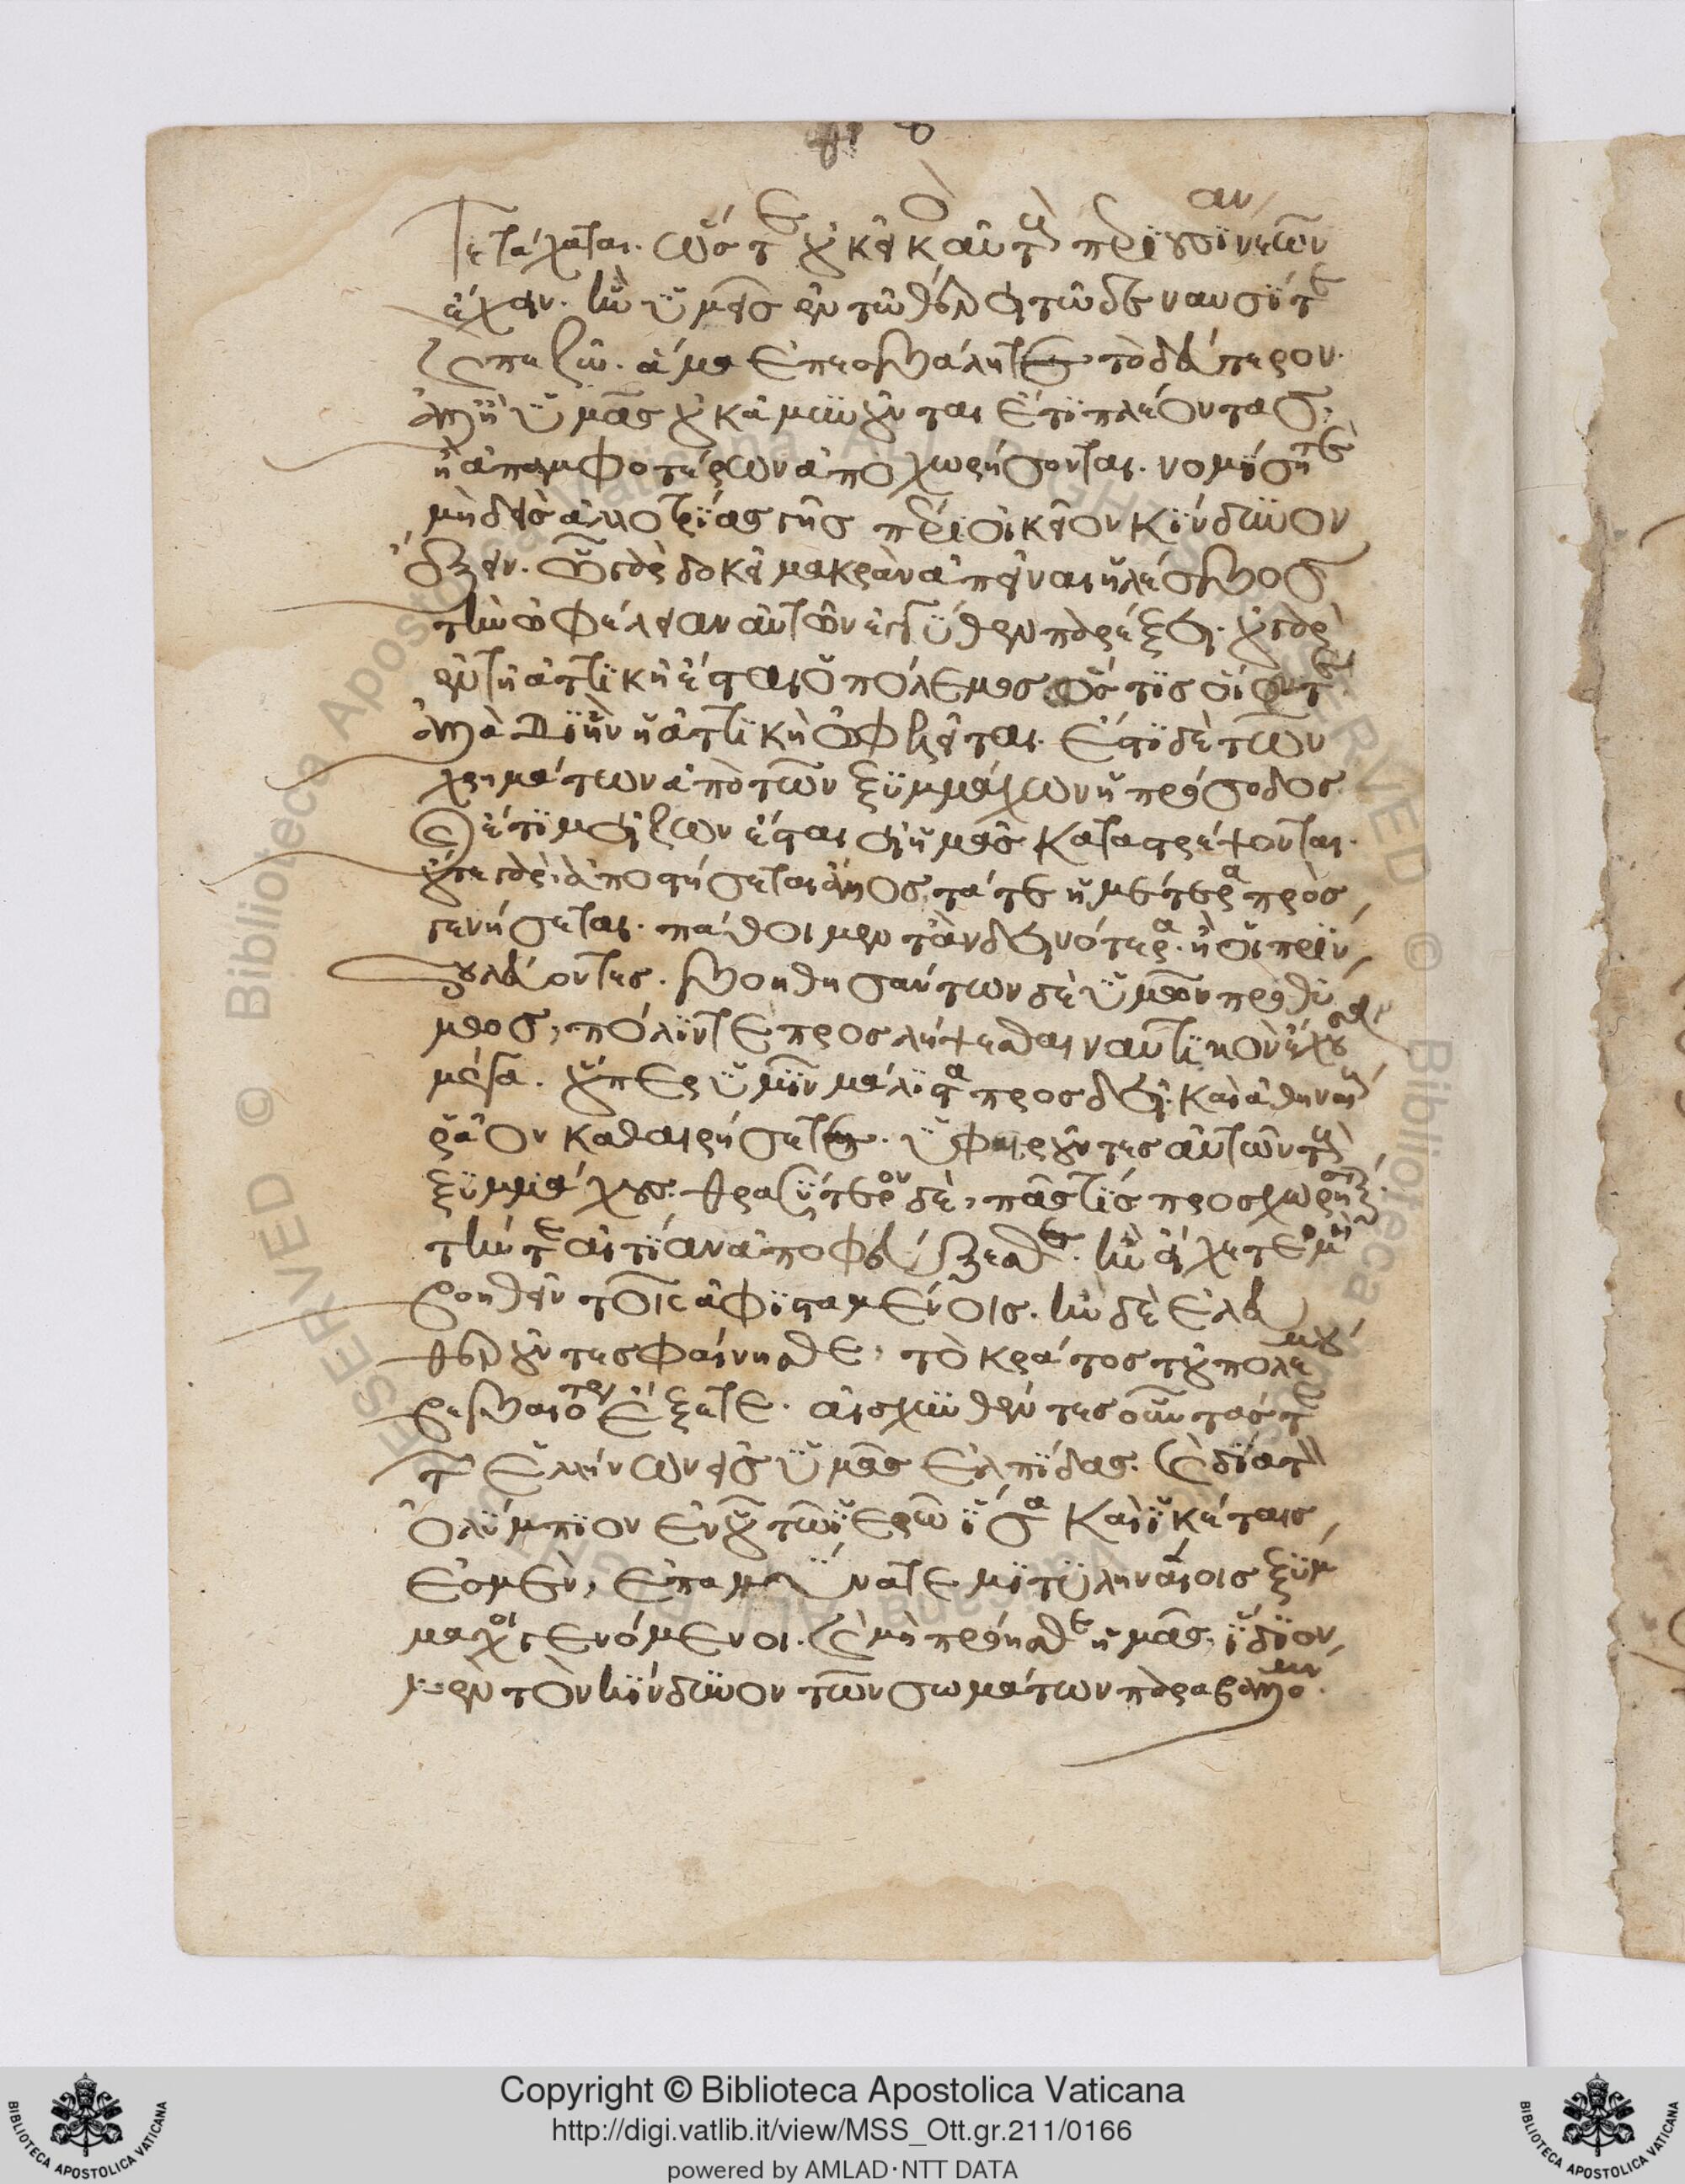 τετάχαται. ὥστε οὐκ εἰκὸς αὐτοὺς περιουσίαν νεῶν
ἔχειν. ἢν ὑμεῖς ἐν τῷ θέρει τῷδε ναυσί τε
καὶ πεζῷ ἅμα ἐπεσβάλητε τὸ δεύτερον.
ἀλλ' ἢ ὑμᾶς οὐκ ἀμυνοῦνται ἐπιπλέοντας,
ἢ ἀπ' ἀμφοτέρων ἀποχωρήσονται. νομίσῃ τε
μηδεὶς ἀλλοτρίας γῆς πέρι οἰκεῖον κίνδυνον
ἕξειν. ᾧ γὰρ δοκεῖ μακρὰν ἀπεῖναι ἡ λέσβος
τὴν ὠφέλειαν αὐτῶν ἐγγύθεν παρέξει. οὐ γὰρ
ἐν τῇ ἀττικῇ ἔσται ὁ πόλεμος ὥς τις οἴεται
ἀλλὰ δι' ἣν ἡ ἀττικὴ ὠφελεῖται. ἔστι δὲ τῶν
χρημάτων ἀπὸ τῶν ξυμμάχων ἡ πρόσοδος.
καὶ ἔτι μείζων ἔσται εἰ ἡμᾶς καταστρέψονται.
οὔτε γὰρ ἀποστήσεται ἄλλος, τά τε ἡμέτερα προσ
γενήσεται. πάθοιμεν τ' ἂν δεινότερα ἢ οἱ πρὶν
δουλεύοντες. βοηθησάντων δὲ ὑμῶν προθύ
μως, πόλιν τε προσλήψεσθαι ναυτικὸν ἔχουσαν
μέγα. οὗπερ ὑμῖν μάλιστα προσδεῖ. καὶ ἀθηναίους
ῥᾷον καθαιρήσετε. ὑφαιροῦντες αὐτῶν τοὺς
ξυμμάχους. θρασύτερον δὲ, πᾶς τίς προσχωρήσεται.
τήν τε αἰτίαν ἀποφεύξεσθε. ἣν εἴχετε μὴ
βοηθεῖν τοῖς ἀφισταμένοις. ἢν δὲ ἐλευ
θεροῦντες φαίνησθε, τὸ κράτος τοῦ πολέμου
βεβαιότερον ἕξετε. αἰσχυνθέντες οὖν τάς τε
τῶν ἑλλήνων εἰς ὑμᾶς ἐλπίδας. καὶ δία τὸν
ὀλύμπιον ἐν οὗ τῷ ἱερῷ ἴσα καὶ ἱκέταις
ἐσμὲν, ἐπαμύνατε μιτυληναίοις ξύμ
μαχοι γενόμενοι. καὶ μὴ πρόησθε ἡμᾶς, ἴδιον
μὲν τὸν κίνδυνον τῶν σωμάτων παραβαλλομένους